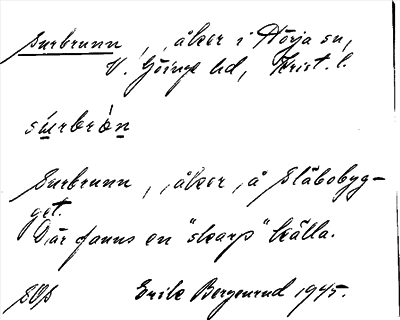 Surbrunn, åker i Hörja sn,
V. Göinge hd, Krist. l.
súrbròn
Surbrunn, åker, å Släbobyg-
get.
Där fanns en "skarp" källa.
Erik Bergenrud 1945.